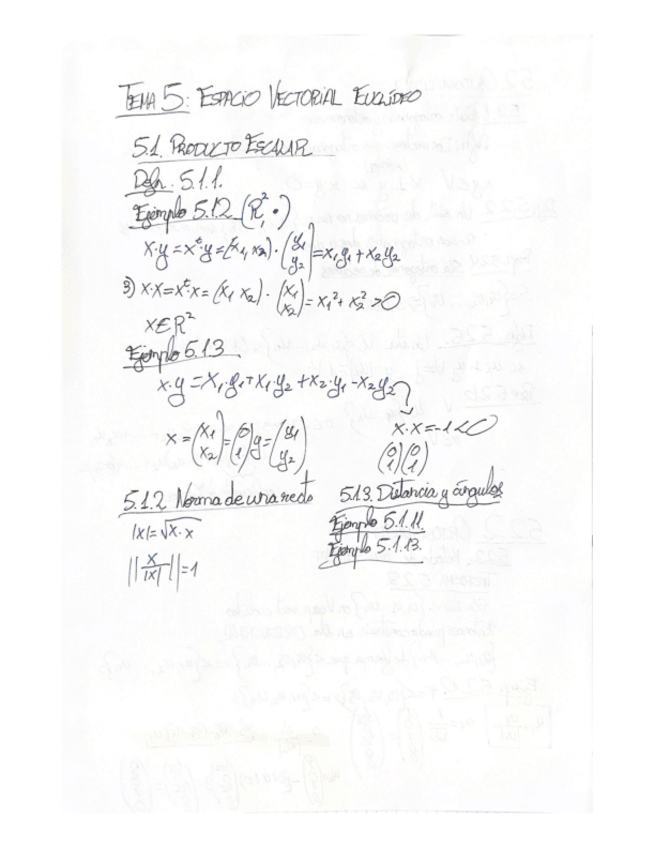 TEMA 5: ESPACIO VECTORIAL EUCLÍDEO
5.1. PRODUCTO ESCALAR
Defn. 5.1.1.
Ejemplo 5.1.2. (R², ·)
x·y = xᵗ·y = (x₁, x₂)·(y₁ y₂) = x₁y₁ + x₂y₂
3) x·x = xᵗ·x = (x₁ x₂)·(x₁ x₂) = x₁² + x₂² > 0
x ∈ R²
Ejemplo 5.1.3
x·y = x₁·y₁ + x₁·y₂ + x₂·y₁ - x₂y₂
x = (x₁ x₂) = (0 1) y = (y₁ y₂)
x·x = -1 < 0
(0 1)(0 1)
5.1.2 Norma de una recta
|x| = √x·x
||x/|x||| = 1
5.1.3. Distancia y ángulos
Ejemplo 5.1.11.
Ejemplo 5.1.13.